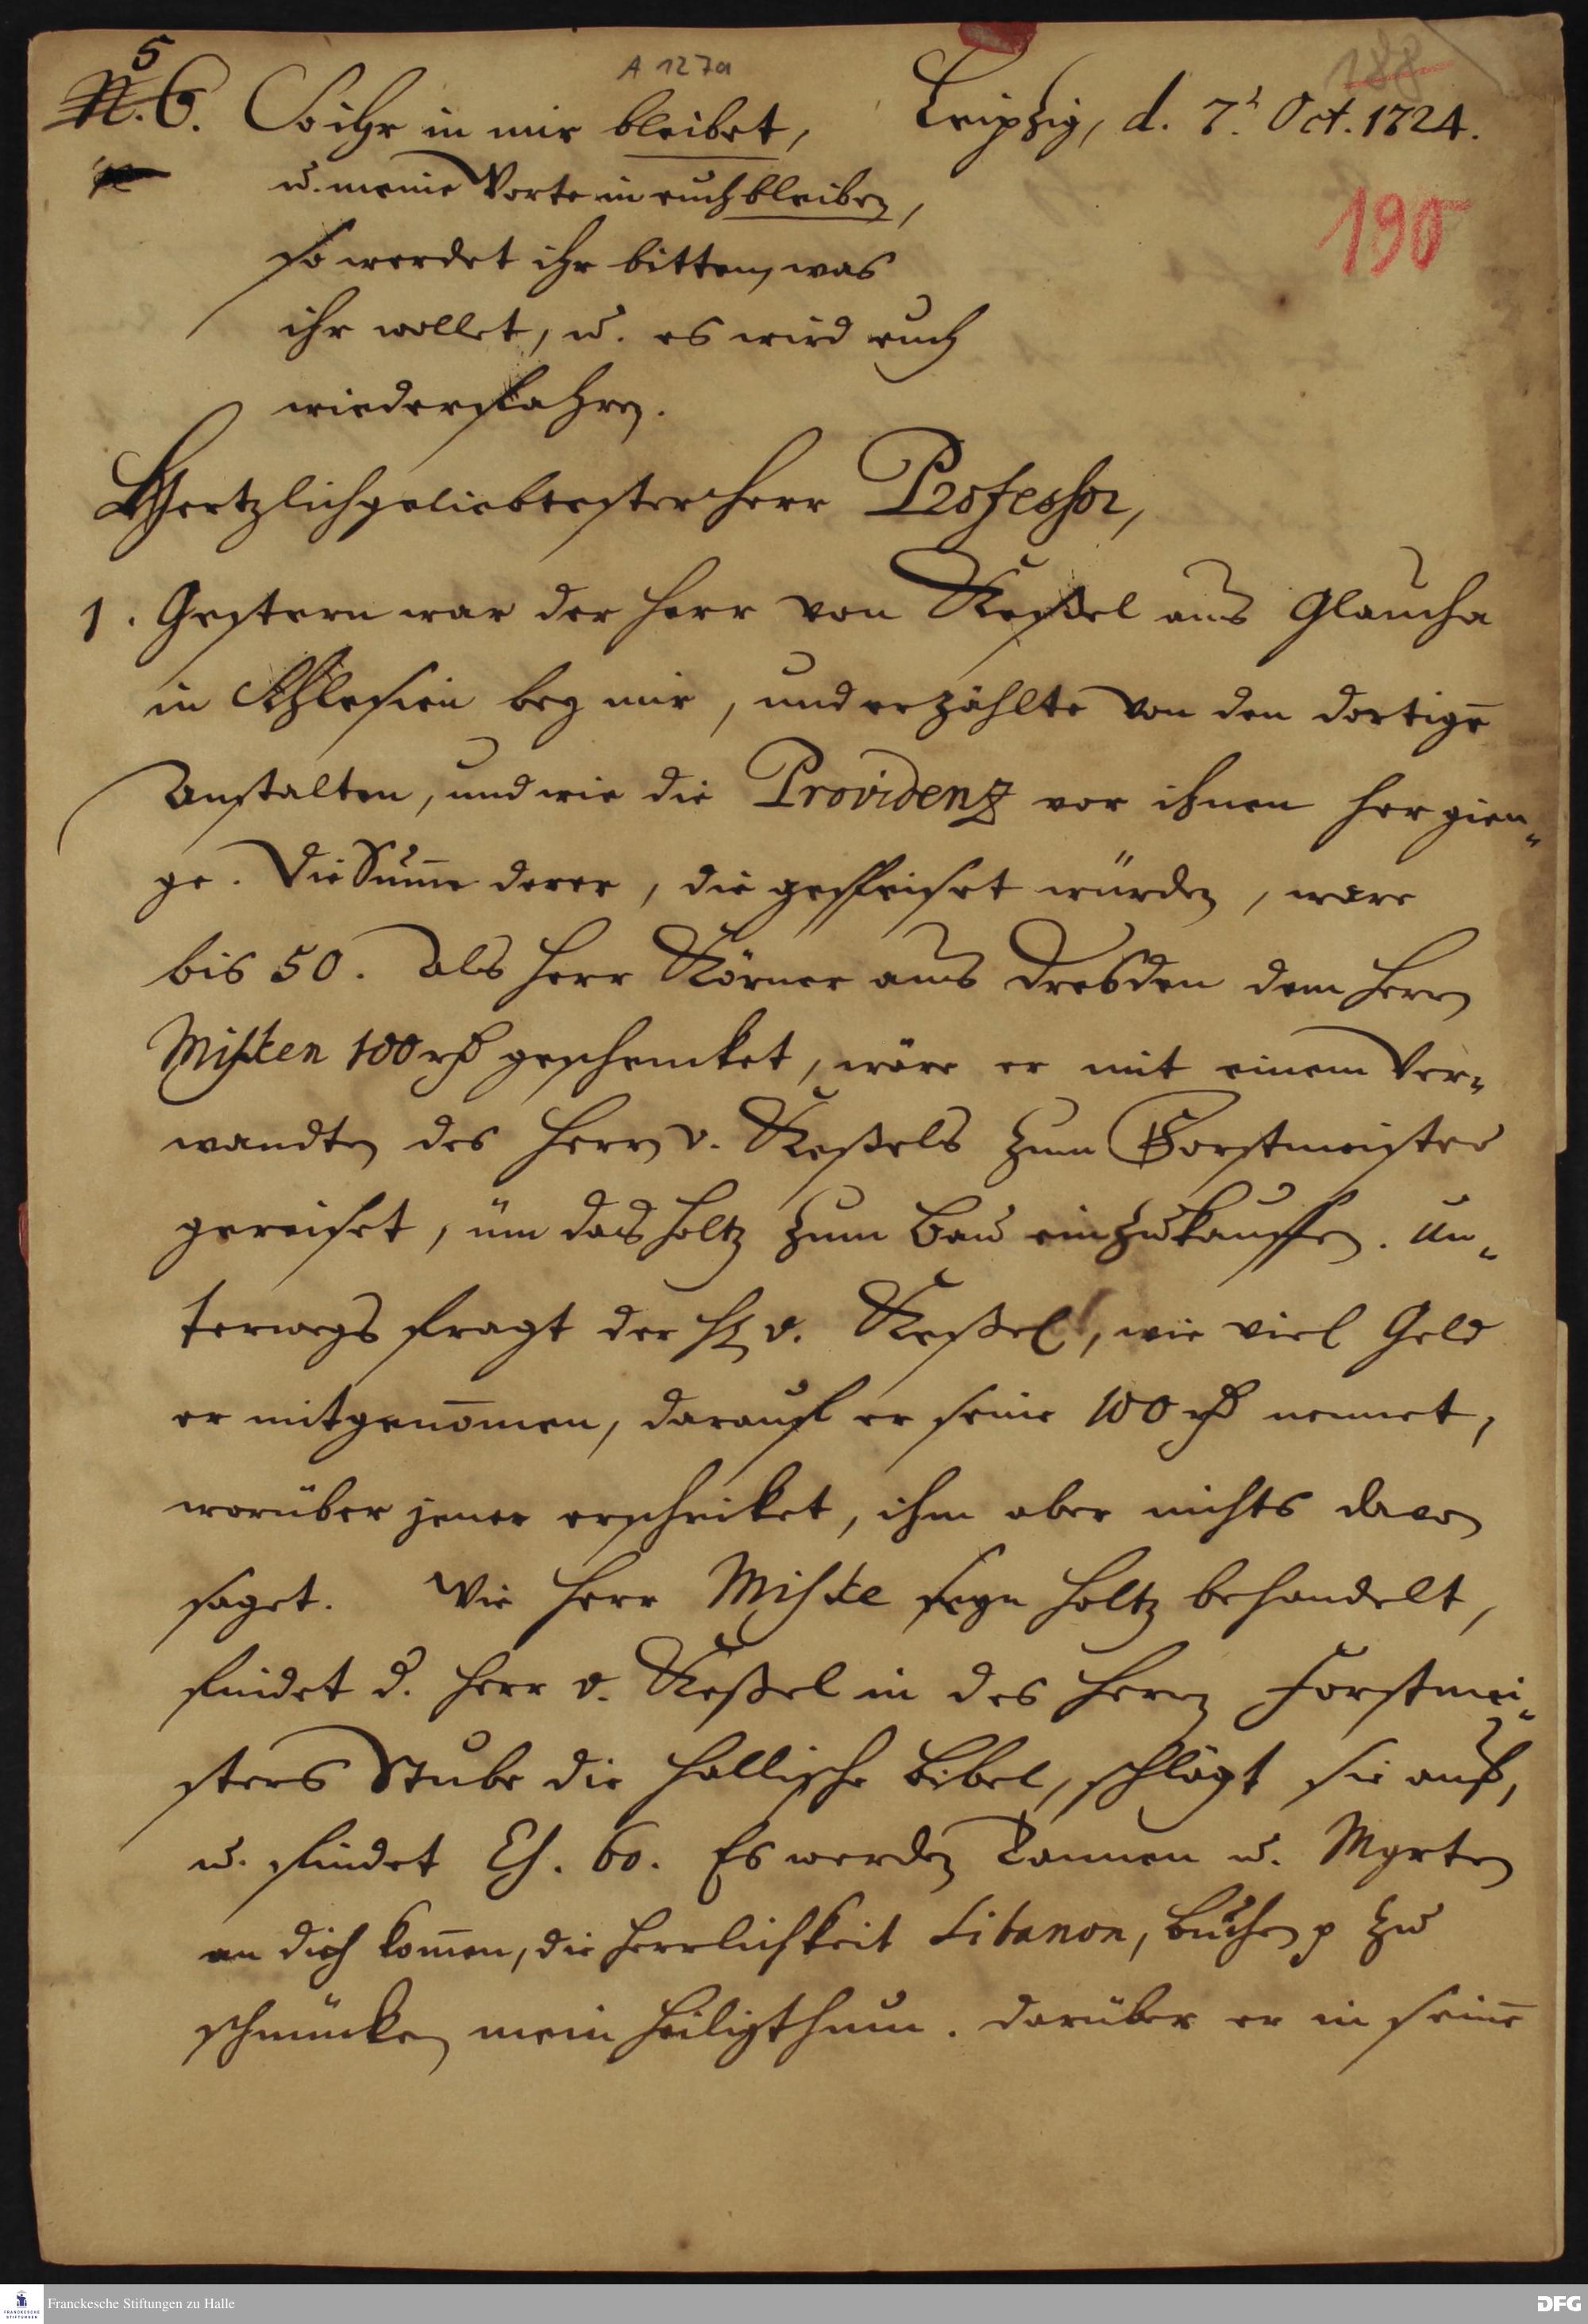 5
A 127a
188
N. 6. So ihr in mir bleibet, Leipzig, d. 7. Oct. 1724.
u. meine Worte in euch bleiben,
190
so werdet ihr bitten, was
ihr wollet, u. es wird euch
wiederfahren.
Hertzlichgeliebtester Herr Professor,
1. Gestern war der Herr von Keßel aus Glaucha
in Schlesien bey mir, und erzählte von den dortigē
Anstalten, und wie die Providenz vor ihnen her gien-
ge. Die Sum̄e derer, die gespeiset würden, wäre
bis 50. Als Herr Körner aus Dresden dem Herrn
Mischken 100 rthl geschencket, wäre er mit einem Ver-
wandten des Herrn v. Keßels zum Forstmeister
gereiset, üm das Holtz zum Bau einzukauffen. Un-
terwegs fragt der H. v. Keßel, wie viel Geld
er mitgenom̄en, darauf er seine 100 rthl nennet,
worüber jener erschricket, ihm aber nichts davon
saget. Wie Herr Mischke seyn Holtz behandelt,
findet d. Herr v. Keßel in des Herrn Forstmei-
sters Stube die Hallische Bibel, schlägt sie auf,
u. findet Es. 60. Es werden Tannen u. Myrten
an dich kom̄en, die Herrlichkeit Libanon, Buchen p zu
schmücken mein Heiligthum. Darüber er in seinē
Franckesche Stiftungen zu Halle
FRANCKESCHE
STIFTUNGEN
DFG